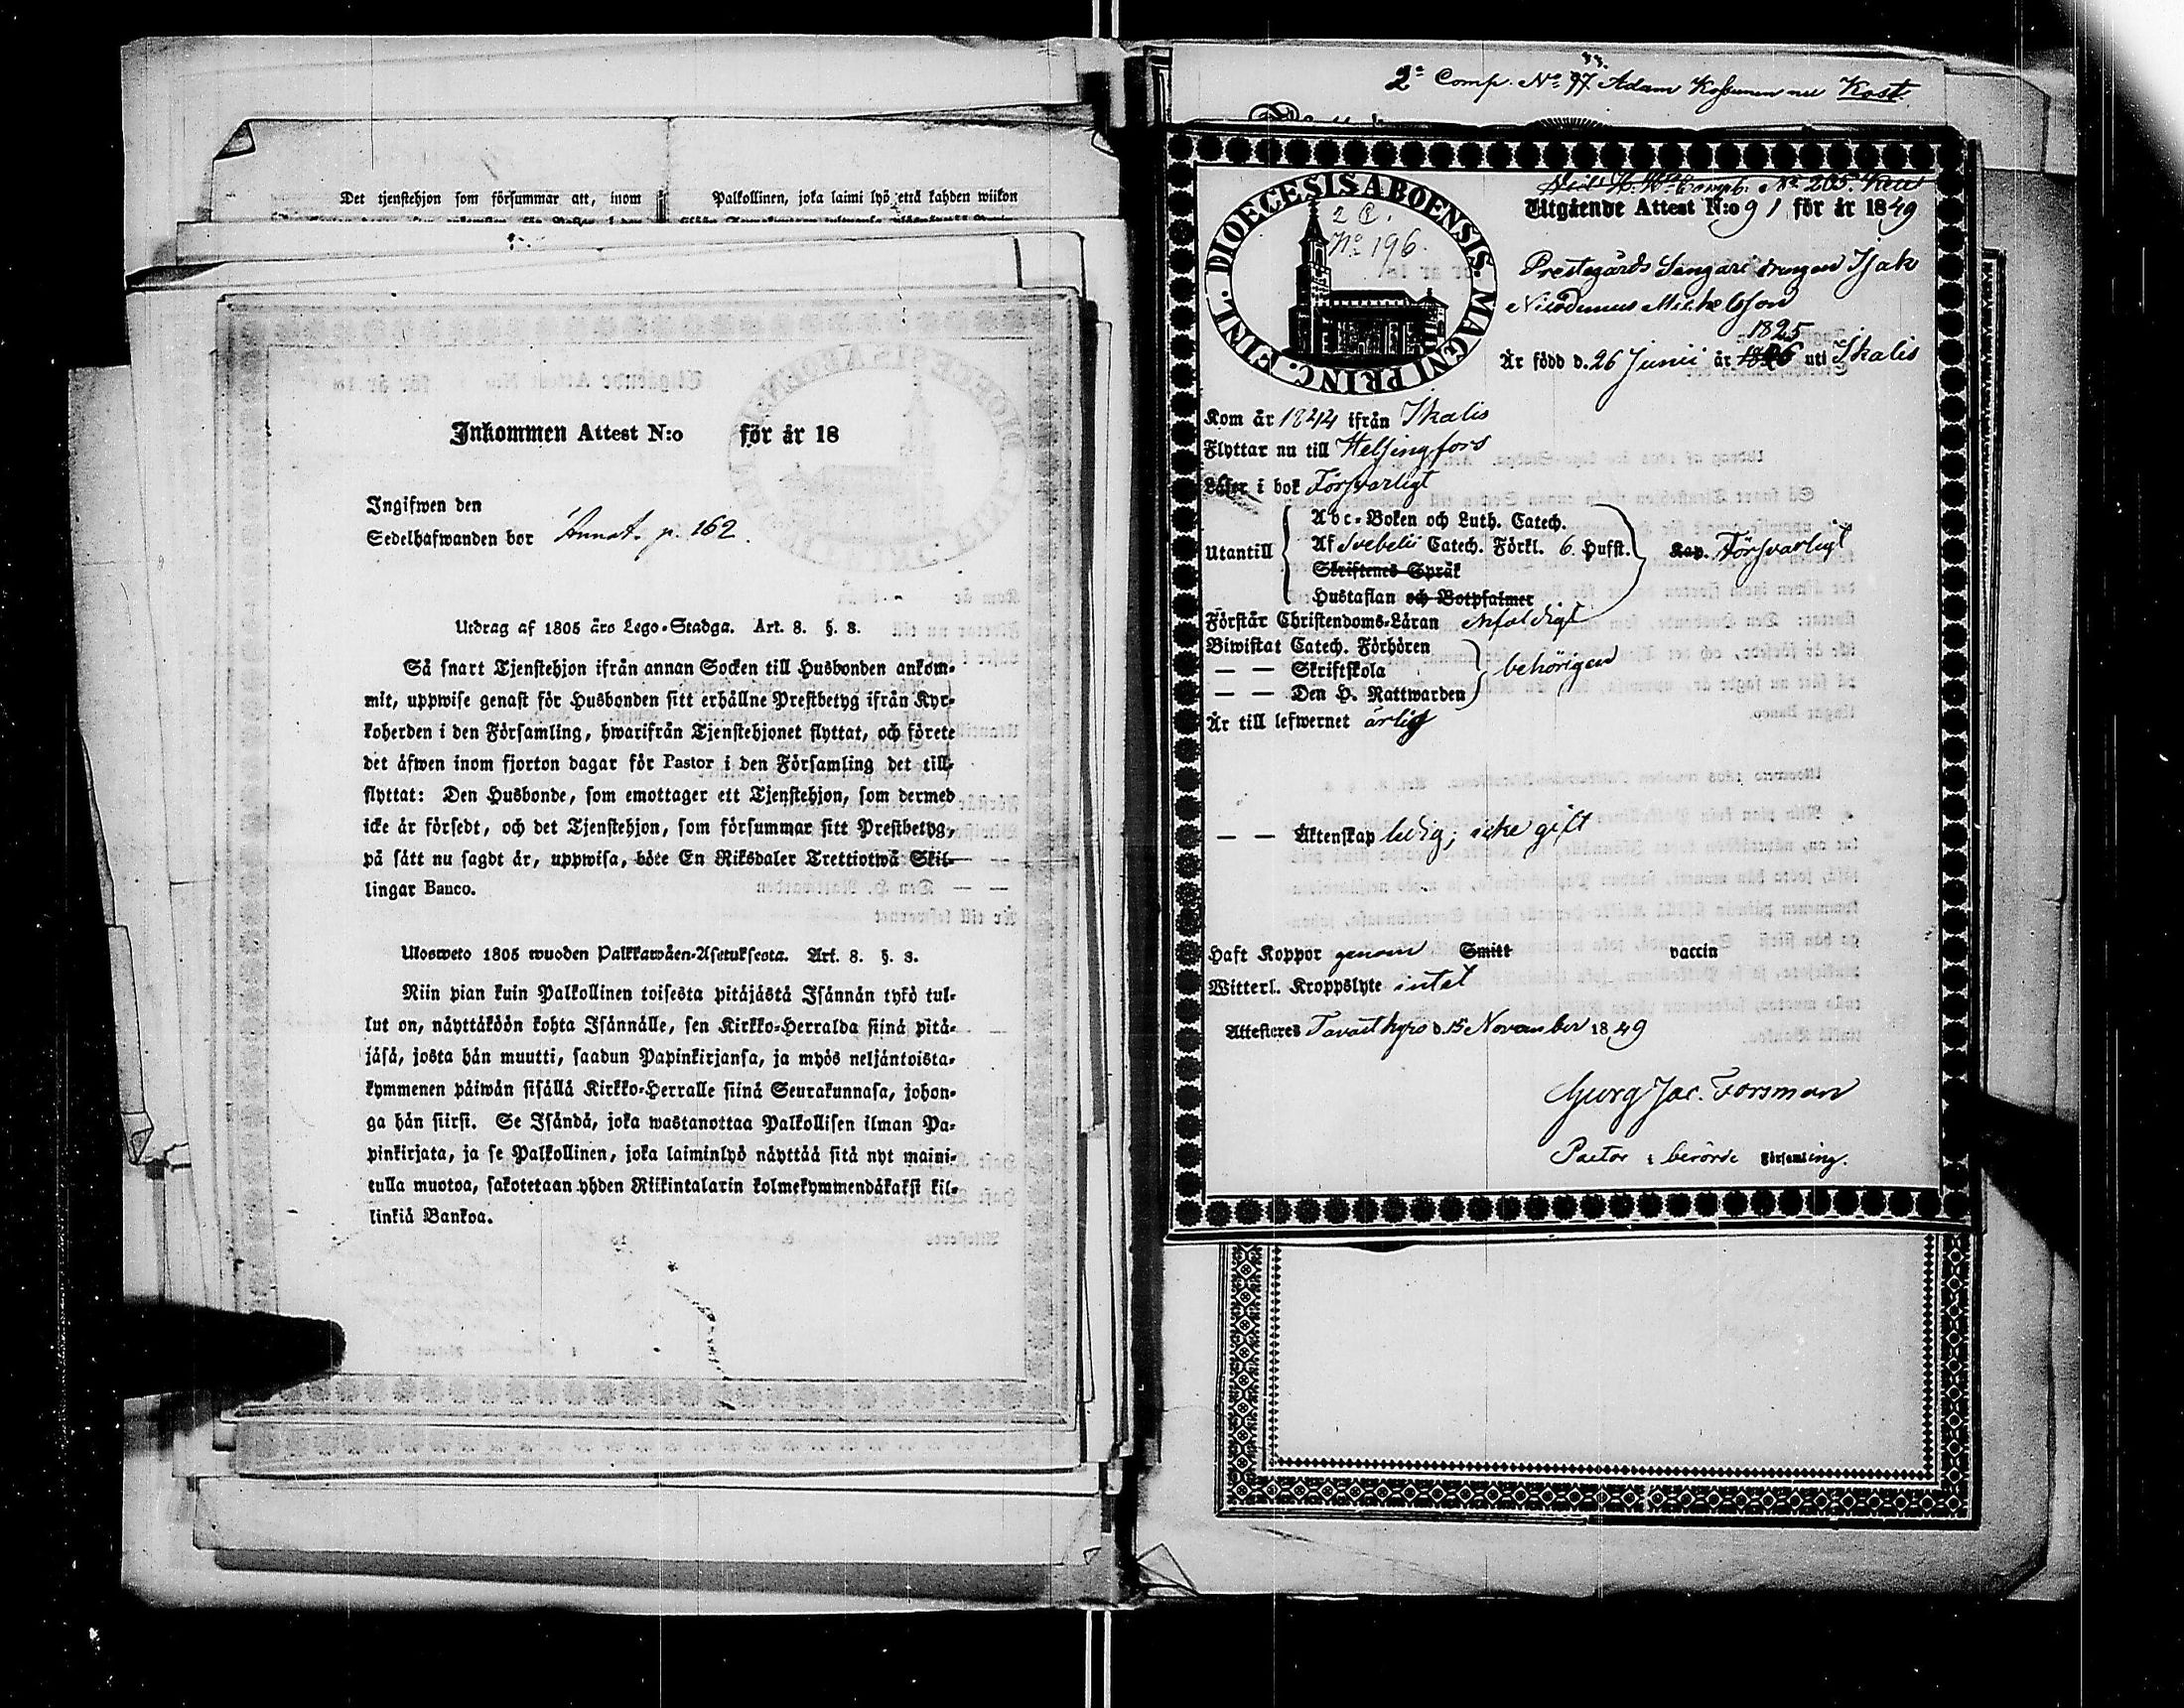 Det tjenstehjon som försummar att, inom
Palkollinen, joka laimi lyö että kahden wiikon
Inkommen Attest N:o för år 18
Ingifwen den
Sedelhafwanden bor Annot. p. 162.
Utdrag af 1805 års Lego-Stadga. Art. 8. §. 8.
Så snart Tjenstehjon ifrån annan Socken till Husbonden ankom-
mit, uppwise genast för Husbonden sitt erhållne Prestbetyg ifrån Kyr-
koherden i den Församling, hwarifrån Tjenstehjonet flyttat, och förete
det äfwen inom fjorton dagar för Pastor i den Församling det till-
flyttat: Den Husbonde, som emottager ett Tjenstehjon, som dermed
icke är försedt, och det Tjenstehjon, som försummar sitt Prestbetyg,
på sätt nu sagdt är, uppwisa, böte En Riksdaler Trettiotwå Skil-
lingar Banco.
Ulosweto 1805 wuoden Palkkawäen-Asetuksesta. Art. 8. §. 8.
Niin pian kuin Palkollinen toisesta pitäjästä Isännän tykö tul-
lut on, näyttäköön kohta Isännälle, sen Kirkko-Herralda siinä pitä-
jäsä, josta hän muutti, saadun Papinkirjansa, ja myös neljäntoista-
kymmenen päiwän sisällä Kirkko-Herralle siinä Seurakunnasa, johon-
ga hän siirsi. Se Isändä, joka wastanottaa Palkollisen ilman Pa-
pinkirjata, ja se Palkollinen, joka laiminlyö näyttää sitä nyt maini-
tulla muotoa, sakotetaan yhden Riikintalarin kolmekymmendäkaksi kil-
linkiä Bankoa.
2a Comp. No 97. Adam Kossunen nu Kost.
DIOECESIS ABOENSIS. MAGNI PRINC. FINL.
2 C.
No 196.
Comp. No 205.
Utgående Attest N:o 91 för år 1849
Prestegårds drengen Isak
Nicodemus Michelsson
1825
Är född d. 26 Junii år 1826 uti Ikalis
Kom år 1844 ifrån Ikalis
Flyttar nu till Helsingfors
Läser i bok Försvarligt
Utantill
Abc-Boken och Luth. Catech.
Af Svebelii Catech. Förkl. 6. Hufst. Kap. Försvarligt
Skriftenes Språk
Hustaflan och Botpsalmer
Förstår Christendoms-Läran enfaldigt
Biwistat Catech. Förhören
— — Skriftskola behörigen
— — Den H. Nattwarden
Är till lefwernet ärlig
— — Äktenskap ledig; icke gift
Haft Koppor genom Smitt vaccin
Witterl. Kroppslyte intet
Attesteres Tavastkyro d. 15 November 1849
Georg Jac. Forsman
Pastor i berörde Församling.